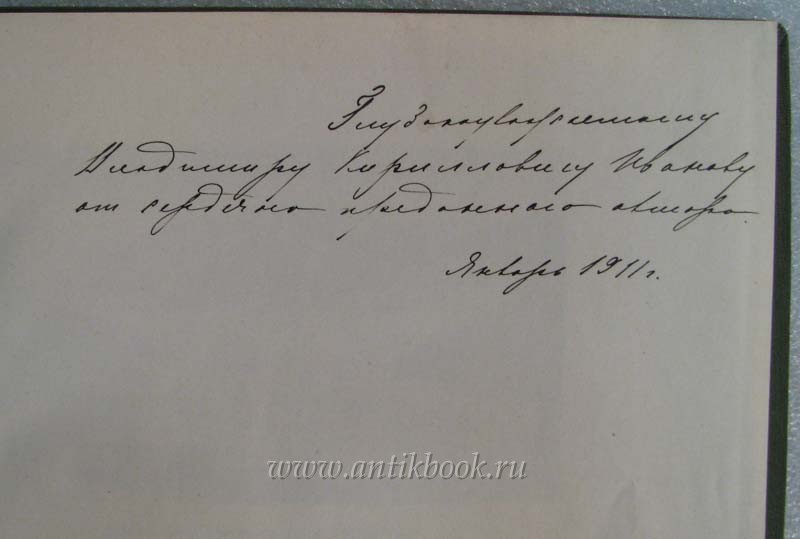 Глубокоуважаемому
Владимиру Кирилловичу Иванову
от сердечно преданного автора.
Январь 1911 г.
www.antikbook.ru